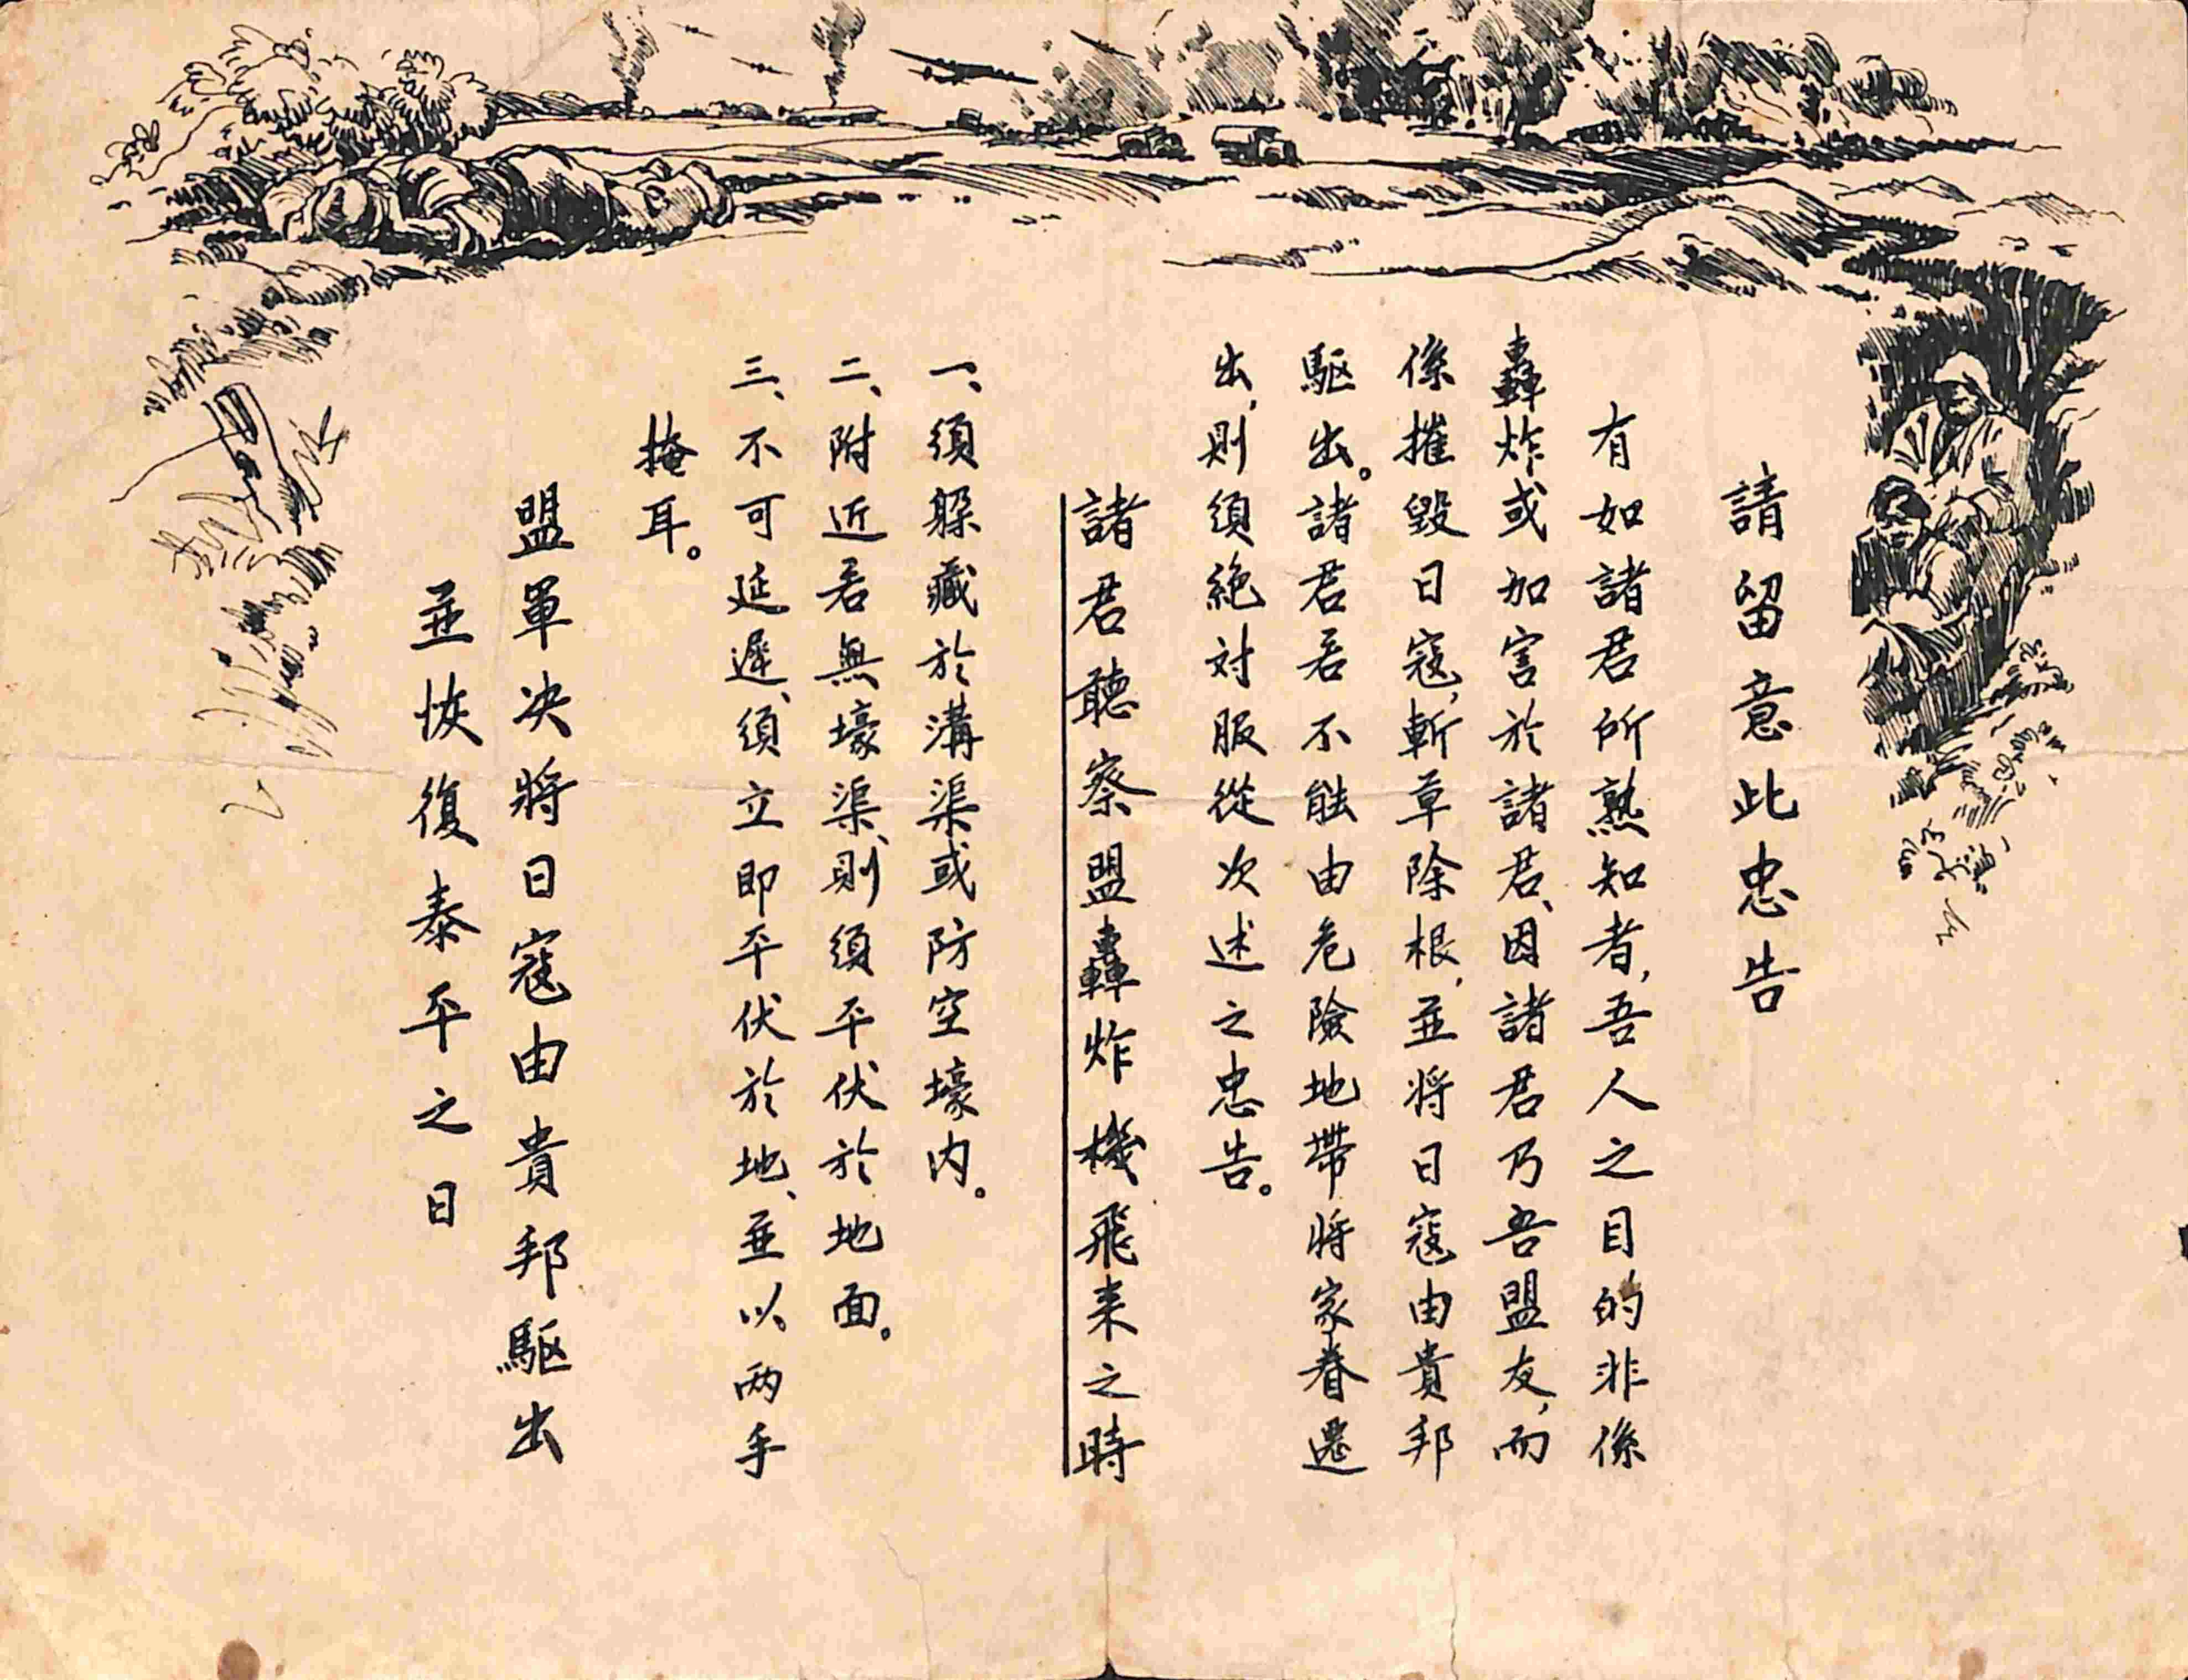 請留意此忠告
有如諸君所熟知者，吾人之目的非係
轟炸或加害於諸君、因諸君乃吾盟友，而
係摧毀日寇，斬草除根，並將日寇由貴邦
驅出。諸君若不能由危險地帶將家眷遷
出，則須絕対服從次述之忠告。
諸君聽察盟轟炸機飛来之時
一、須躲藏於溝渠或防空壕内。
二、附近若無壕渠、則須平伏於地面。
三、不可延遲、須立即平伏於地、並以両手
掩耳。
盟軍决將日寇由貴邦驅出
並恢復泰平之日